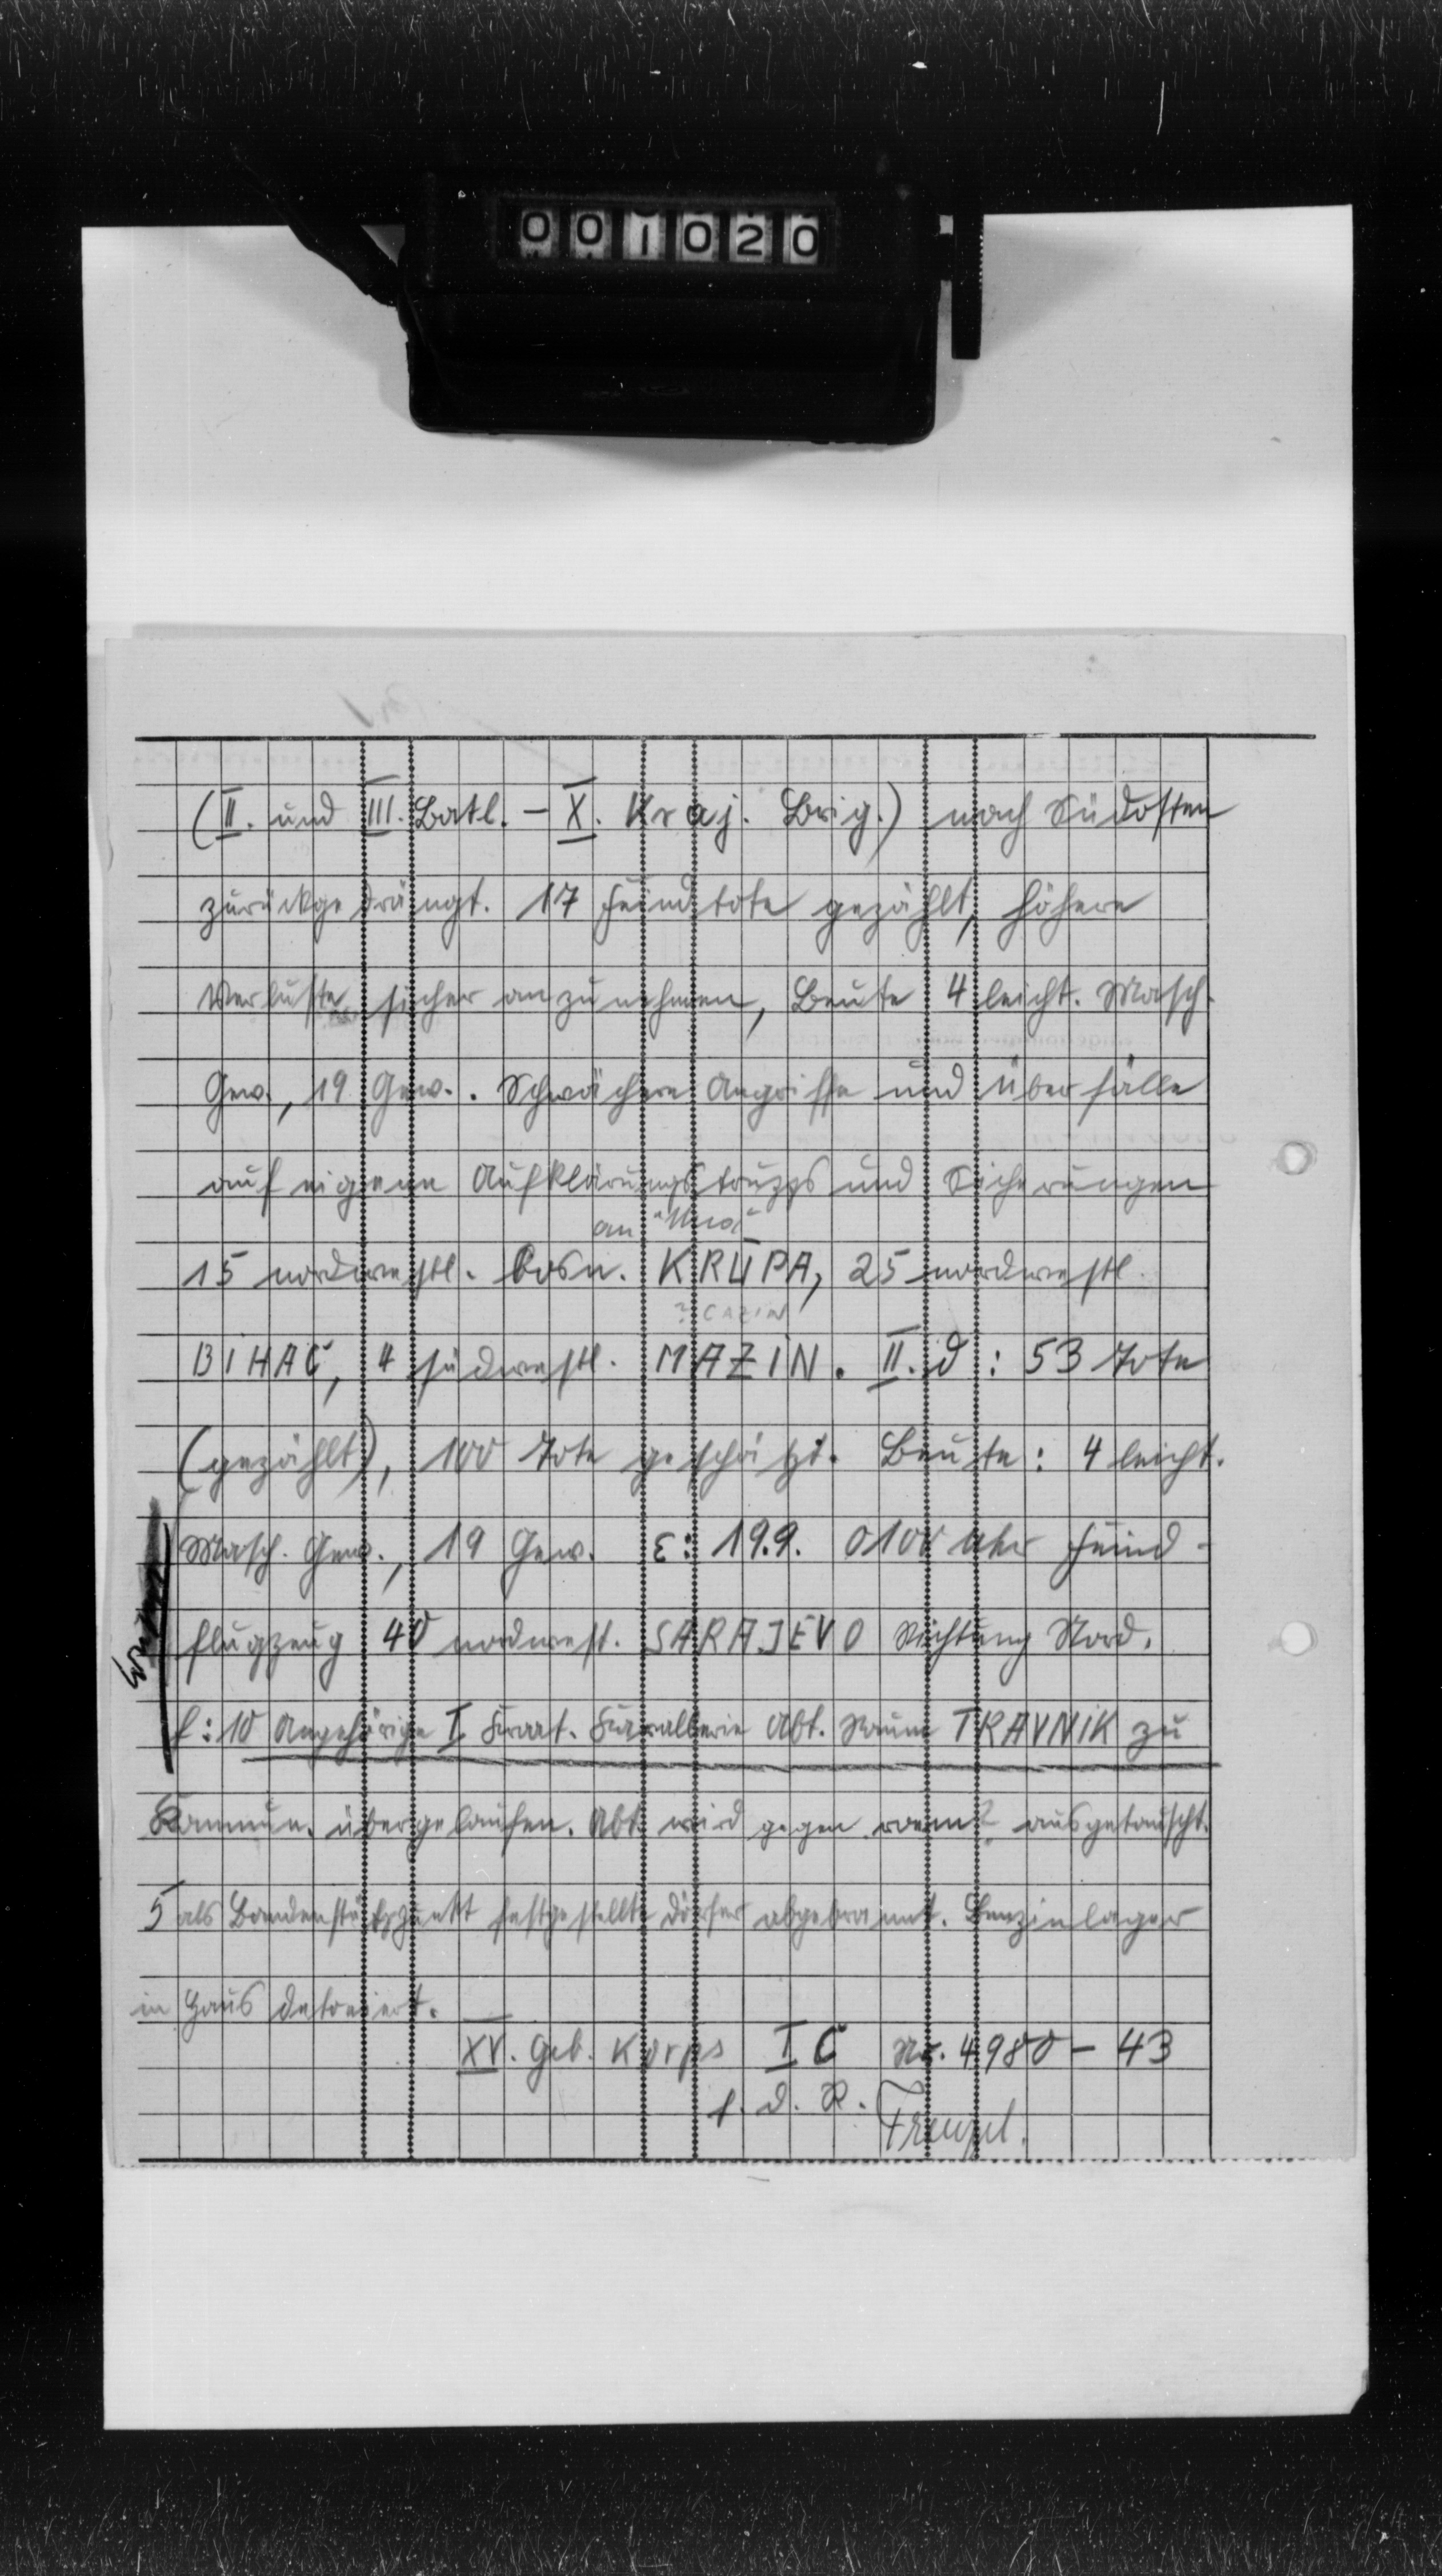 001020
(II. und III. Batl. - X. Kraj. Brig.) nach Südosten
zurückgedrängt. 17 Feindtote gezählt, höhere
Verluste sicher anzunehmen, Beute 4 leicht. Masch.
Gew., 19 Gew.. Schwächere Angriffe und Überfälle
auf eigene Aufklärungstrupps und Sicherungen
an "Una"
15 nordwestl. Bosn. KRUPA, 25 nordwestl.
? CAZIN
BIHAC, 4 südwestl. MAZIN. II. d: 53 Tote
(gezählt), 100 Tote geschätzt. Beute: 4 leicht.
Masch. Gew., 19 Gew. E: 19.9. 0100 Uhr Feind-
flugzeug 40 nordwest. SARAJEVO Richtung Nord.
f: 10 Angehörige I Kroat. Abt. Raum TRAVNIK zu
Kommun. übergelaufen. Abt. wird gegen ausgetauscht.
5 als Bandenstützpunkt festgestellte Dörfer abgebrannt. Benzinlager
in Haus detoniert.
XV. Geb. Korps I C Nr. 4980 - 43
f. d. R. Frenzel.